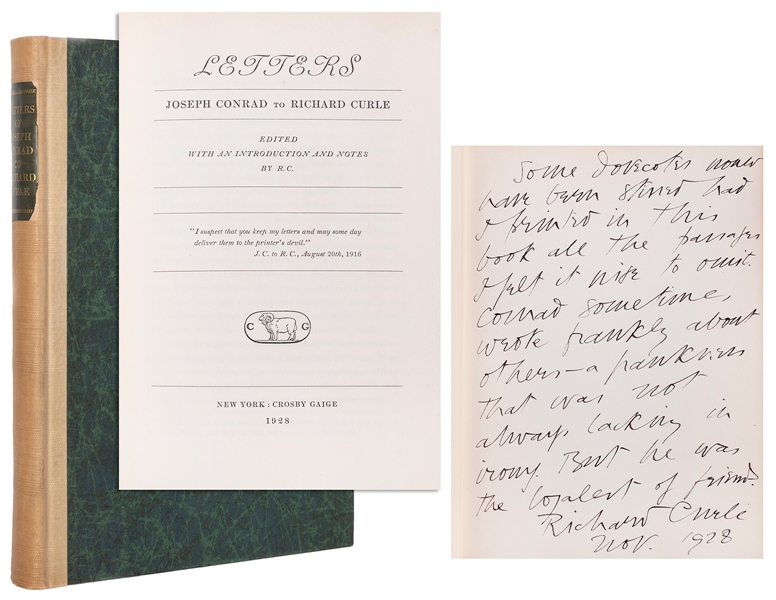 LETTERS
OF
JOSEPH
CONRAD
TO
RICHARD
CURLE
LETTERS
JOSEPH CONRAD TO RICHARD CURLE
EDITED
WITH AN INTRODUCTION AND NOTES
BY R.C.
"I suspect that you keep my letters and may some day
deliver them to the printer's devil."
J. C. to R. C., August 20th, 1916
C G
NEW YORK : CROSBY GAIGE
1928
Some dovecotes would
have been stirred had
I printed in this
book all the passages
I felt it wise to omit.
Conrad sometimes
wrote frankly about
others – a frankness
that was not
always lacking in
irony. But he was
the loyalest of friends.
Richard Curle
Nov. 1928